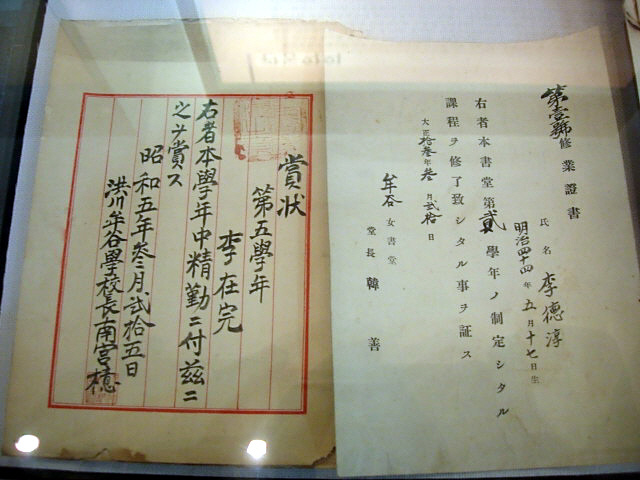 第壹號
修業證書
氏名 李德淳
明治四十四年五月十七日生
右者本書堂第貳學年ノ制定シタル
課程ヲ修了致シタル事ヲ証ス
大正拾叁年叁月貳拾日
牟谷女書堂
堂長 韓善
賞狀
第五學年
李在完
右者本學年中精勤ニ付茲ニ
之ヲ賞ス
昭和五年叁月貳拾五日
洪川牟谷學校長南宮檍